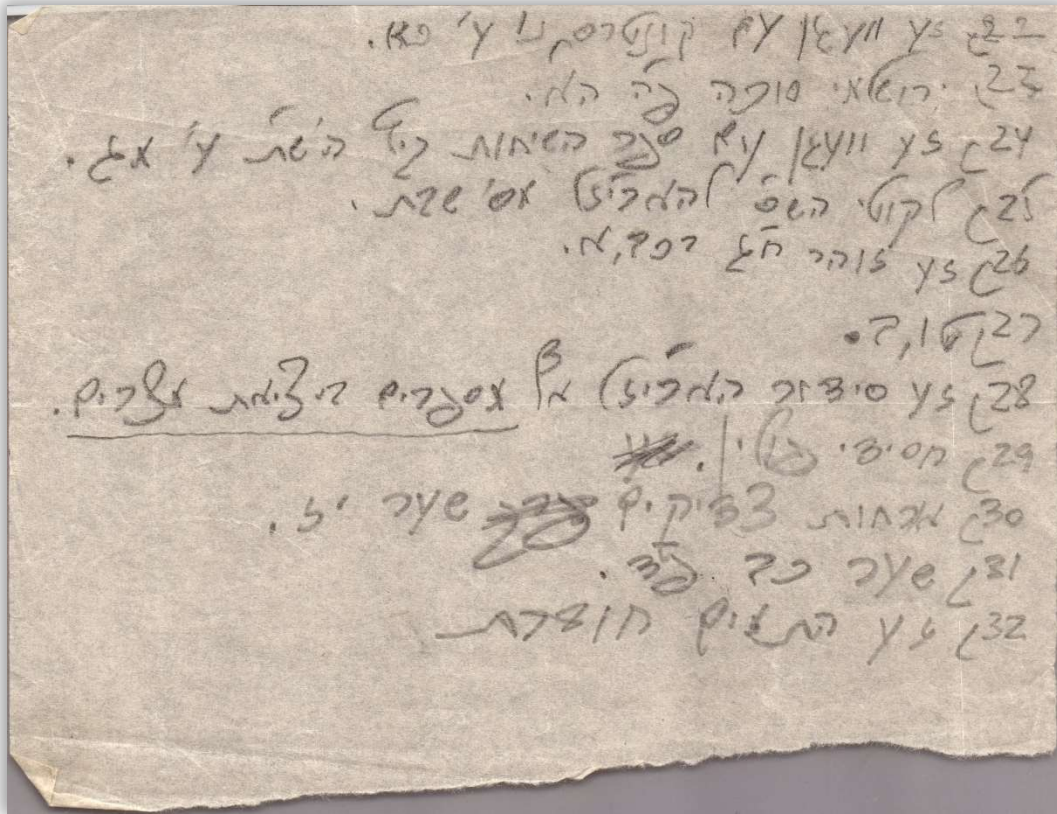 22) זע וועגן עם קונטרס נו ע' כא.
23) ירושלמי סוכה פ"ה ה"א.
24) זע וועגן עם ספר השיחות קיץ ה'ש"ת ע' מג.
25) לקוטי הש"ס להאריז"ל מס' שבת.
26) זע זוהר ח"ג רפב,א.
27) קטו,ב.
28) זע סידור האריז"ל מצ' מספרים ביציאת מצרים.
29) חסידי
30) ארחות צדיקים שער יז.
31) שער כב
32) זע התמים חוברת